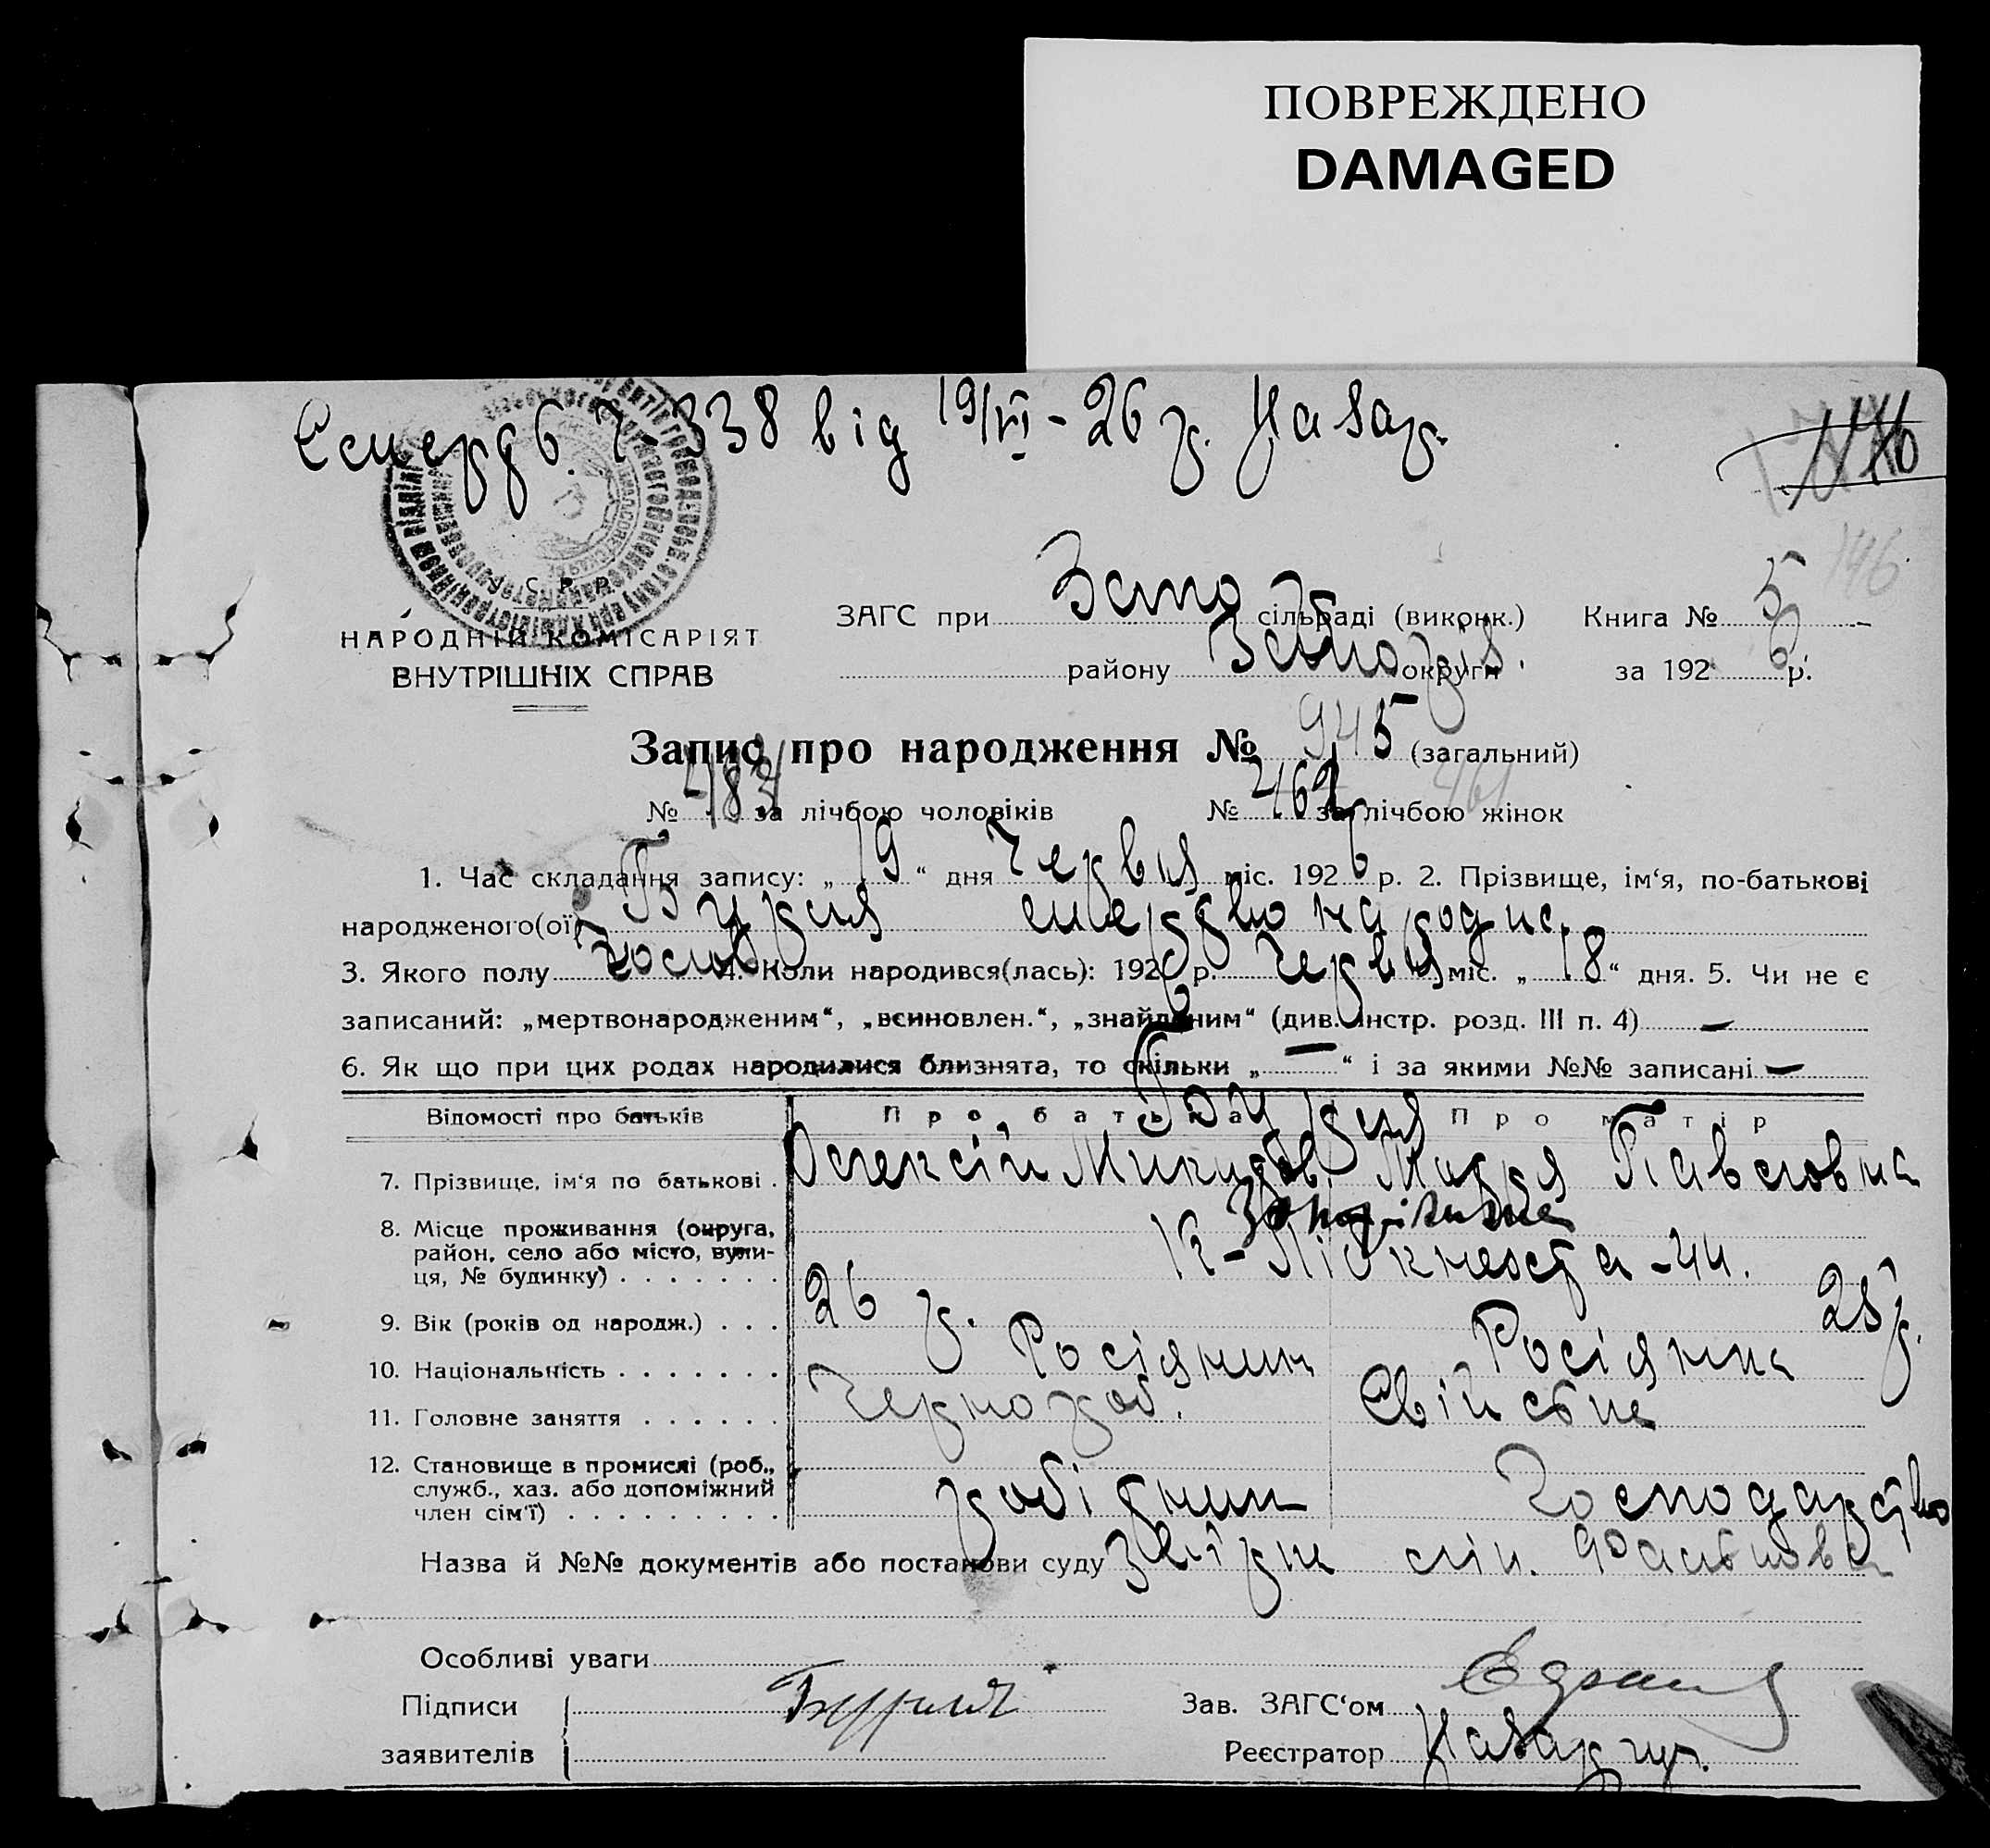 ПОВРЕЖДЕНО
DAMAGED
338 від 19/VI - 26 р. Назар.
146
146
У. С. Р. Р.
НАРОДНІЙ КОМІСАРІЯТ
ВНУТРІШНІХ СПРАВ
ЗАГС при сільраді (виконк.) Книга № 5
району округи за 192 6 р.
Запис про народження № 945 (загальний)
№ 483 за лічбою чоловіків № 462 за лічбою жінок 461
1. Час складання запису: „ 19 “ дня Червня міс. 192 6 р. 2. Прізвище, ім‘я, по-батькові
народженого(ої) Бурля мертвонародж.
3. Якого полу 4. Коли народився(лась): 192 6 р. Червня міс. „ 18 “ дня. 5. Чи не є
записаний: „мертвонародженим“, „всиновлен.“, „знайденим“ (див. інстр. розд. III п. 4) —
6. Як що при цих родах народилися близнята, то скільки „ — “ і за якими №№ записані —
Відомості про батьків Про батька Про матір
Бурля
7. Прізвище, ім‘я по батькові . Олексій Микитов. Марія Павловна
8. Місце проживання (округа, Запоріжжя
район, село або місто, вули-
ця, № будинку) . . . . . . . - 44.
9. Вік (років од народж.) . . . 26 р. 25 р.
10. Національність . . . . . . . Росіянин Росіянка
11. Головне заняття . . . . . . Чернороб. Свійське
12. Становище в промислі (роб.,
служб., хаз. або допоміжний
член сім‘ї) . . . . . . . . . робітник господарство
Назва й №№ документів або постанови суду
Особливі уваги
Підписи Бурля Зав. ЗАГС‘ом
заявителів Реєстратор Назар